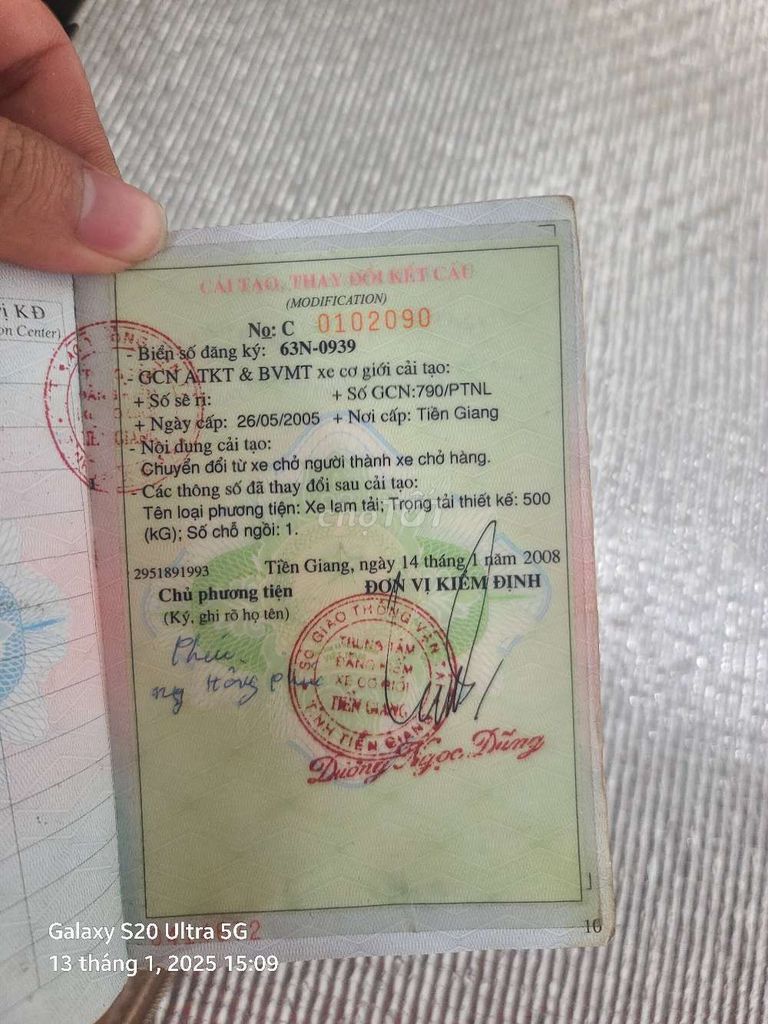 ị KĐ
on Center)
CẢI TẠO, THAY ĐỔI KẾT CẤU
(MODIFICATION)
No: C 0102090
- Biển số đăng ký: 63N-0939
- GCN ATKT & BVMT xe cơ giới cải tạo:
+ Số sê ri: + Số GCN:790/PTNL
+ Ngày cấp: 26/05/2005 + Nơi cấp: Tiền Giang
- Nội dung cải tạo:
Chuyển đổi từ xe chở người thành xe chở hàng.
- Các thông số đã thay đổi sau cải tạo:
Tên loại phương tiện: Xe lam tải; Trọng tải thiết kế: 500
(kG); Số chỗ ngồi: 1.
chợTỐT
2951891993 Tiền Giang, ngày 14 tháng 1 năm 2008
Chủ phương tiện ĐƠN VỊ KIỂM ĐỊNH
(Ký, ghi rõ họ tên)
SỞ GIAO THÔNG VẬN TẢI
TRUNG TÂM
ĐĂNG KIỂM
XE CƠ GIỚI
TIỀN GIANG
TỈNH TIỀN GIANG
Phúc
Hồng Phúc
Dương Ngọc Dũng
16
Galaxy S20 Ultra 5G
13 tháng 1, 2025 15:09